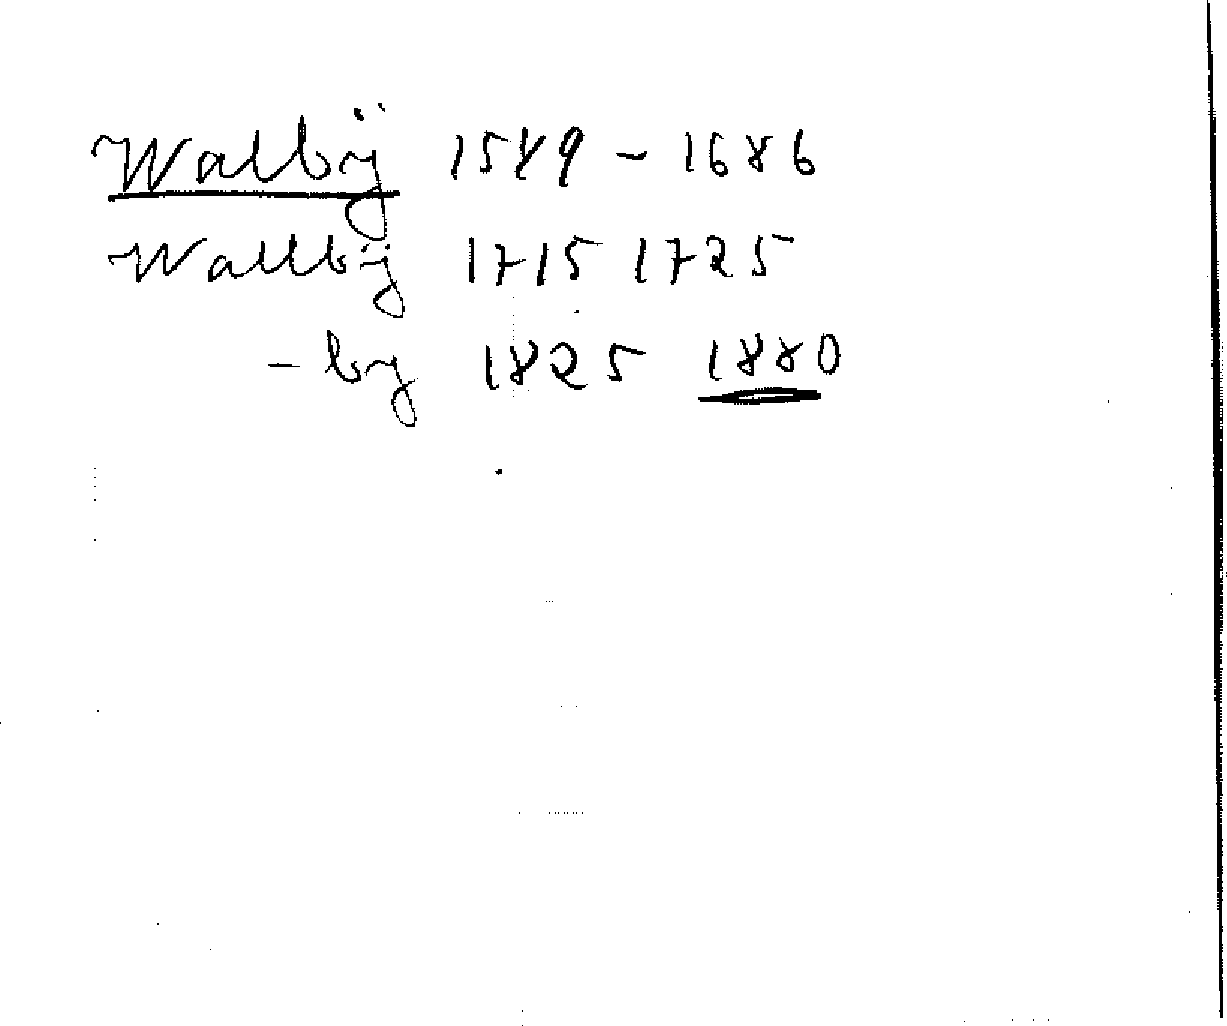 Walbÿ 1589 - 1686
Wallbÿ 1715 1725
- by 1825 1880